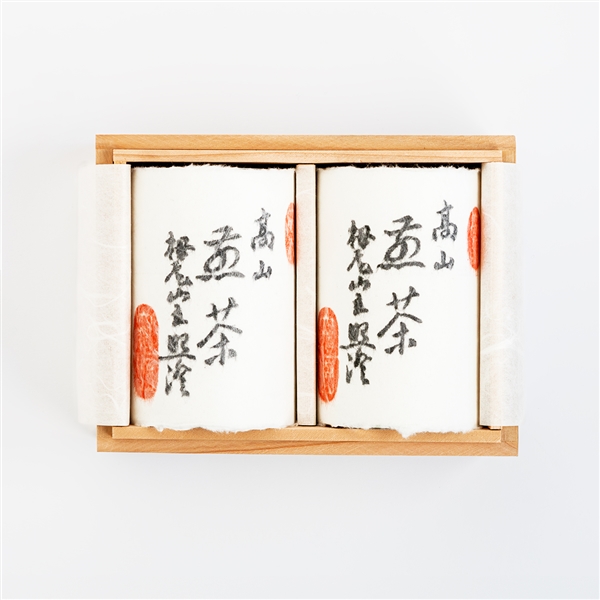 高山
煎茶
栂尾山主照澄
高山
煎茶
栂尾山主照澄